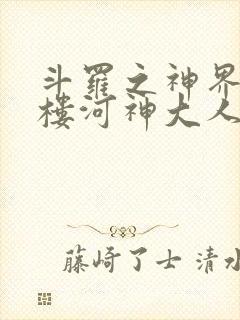 斗羅之神界
樓河神大人
藤崎了士 清水